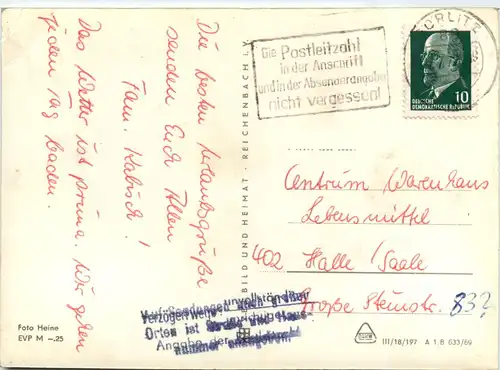 Die besten Urlaubsgrüße
senden Euch Allen
Fam. Kabisch!
Das Wetter ist prima. Wir gehen
jeden Tag baden.
Foto Heine
EVP M –.25
BILD UND HEIMAT · REICHENBACH i. V.
GÖRLITZ
Die Postleitzahl
in der Anschrift
und in der Absenderangabe
nicht vergessen!
10
DEUTSCHE
DEMOKRATISCHE REPUBLIK
Centrum Warenhaus
Lebensmittel
402 Halle / Saale
Große Steinstr. 83?
unvollständig
Verzögerung
Orten ist Straße und Haus-
Angabe der
nummer anzugeben.
III/18/197 A 1. B 633/69